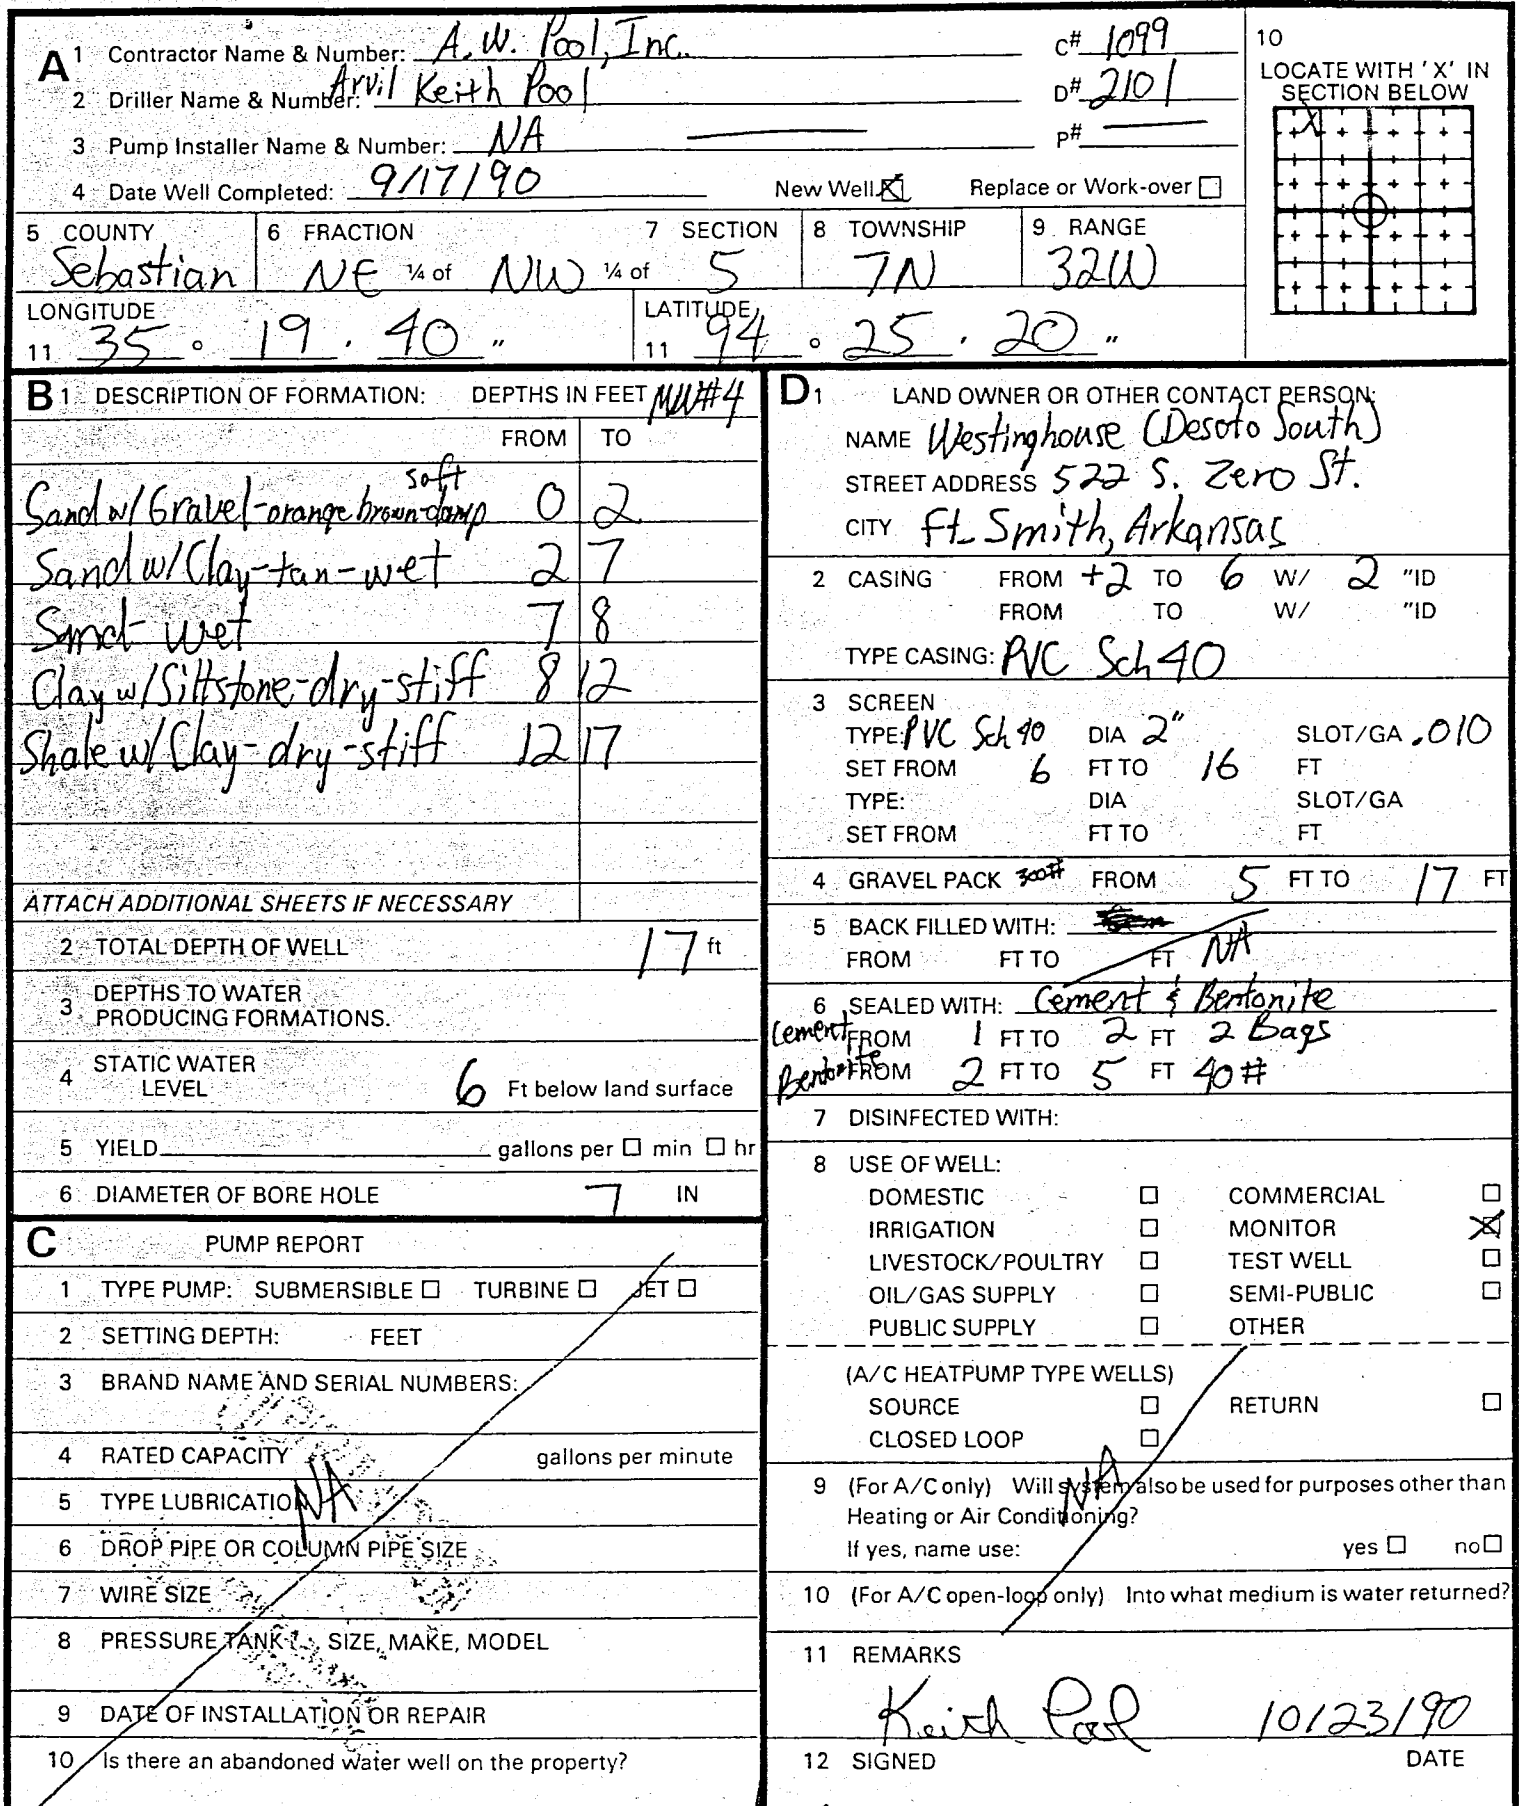 A 1 Contractor Name & Number: A.W. Pool, Inc. C# 1099
2 Driller Name & Number: Arvil Keith Pool D# 2101
3 Pump Installer Name & Number: NA P#
4 Date Well Completed: 9/17/90 New Well Replace or Work-over
10
LOCATE WITH 'X' IN
SECTION BELOW
X
5 COUNTY 6 FRACTION 7 SECTION 8 TOWNSHIP 9 RANGE
Sebastian NE ¼ of NW ¼ of 5 7N 32W
LONGITUDE LATITUDE
11 35 ° 19 ' 40 " 11 94 ° 25 ' 20 "
B 1 DESCRIPTION OF FORMATION: DEPTHS IN FEET MW#4
FROM TO
soft
Sand w/ Gravel-orange brown-damp 0 2
Sand w/ Clay-tan-wet 2 7
Sand-wet 7 8
Clay w/ Siltstone-dry-stiff 8 12
Shale w/ Clay-dry-stiff 12 17
ATTACH ADDITIONAL SHEETS IF NECESSARY
2 TOTAL DEPTH OF WELL 17 ft
3 DEPTHS TO WATER
PRODUCING FORMATIONS.
4 STATIC WATER
LEVEL 6 Ft below land surface
5 YIELD gallons per min hr
6 DIAMETER OF BORE HOLE 7 IN
C PUMP REPORT
1 TYPE PUMP: SUBMERSIBLE TURBINE JET
2 SETTING DEPTH: FEET
3 BRAND NAME AND SERIAL NUMBERS:
4 RATED CAPACITY gallons per minute
5 TYPE LUBRICATION NA
6 DROP PIPE OR COLUMN PIPE SIZE
7 WIRE SIZE
8 PRESSURE TANK: SIZE, MAKE, MODEL
9 DATE OF INSTALLATION OR REPAIR
10 Is there an abandoned water well on the property?
D 1 LAND OWNER OR OTHER CONTACT PERSON:
NAME Westinghouse (Desoto South)
STREET ADDRESS 522 S. Zero St.
CITY Ft. Smith, Arkansas
2 CASING FROM +2 TO 6 W/ 2 "ID
FROM TO W/ "ID
TYPE CASING: PVC Sch 40
3 SCREEN
TYPE: PVC Sch 40 DIA 2" SLOT/GA .010
SET FROM 6 FT TO 16 FT
TYPE: DIA SLOT/GA
SET FROM FT TO FT
4 GRAVEL PACK 300# FROM 5 FT TO 17 FT
5 BACK FILLED WITH:
FROM FT TO FT NA
6 SEALED WITH: Cement & Bentonite
Cement FROM 1 FT TO 2 FT 2 Bags
Bentonite FROM 2 FT TO 5 FT 40#
7 DISINFECTED WITH:
8 USE OF WELL:
DOMESTIC COMMERCIAL
IRRIGATION MONITOR
LIVESTOCK/POULTRY TEST WELL
OIL/GAS SUPPLY SEMI-PUBLIC
PUBLIC SUPPLY OTHER
(A/C HEATPUMP TYPE WELLS)
SOURCE RETURN
CLOSED LOOP
NA
9 (For A/C only) Will system also be used for purposes other than
Heating or Air Conditioning?
If yes, name use: yes no
10 (For A/C open-loop only) Into what medium is water returned?
11 REMARKS
Keith Pool 10/23/90
12 SIGNED DATE